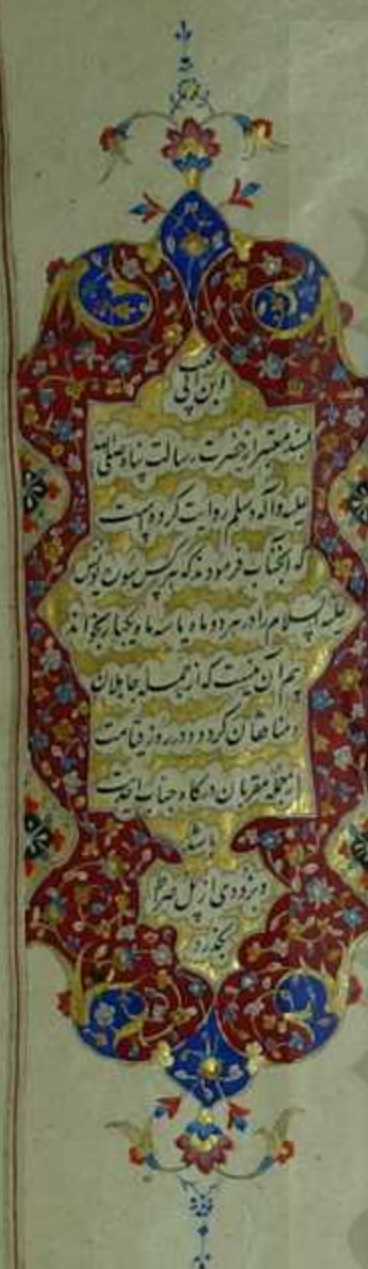 ابن ابی کعب
بسند معتبر از حضرت رسالت پناه صلی الله
علیه و آله و سلم روایت کرده است
که آنجناب فرمودند که هر کس سوره یونس
علیه السلام را در هر دو ماه یا سه ماه یکبار بخواند
بیم آن نیست که از جمله جاهلان
و منافقان گردد و در روز قیامت
از جمله مقربان درگاه جناب احدیت
باشد
و بزودی از پل صراط
بگذرد